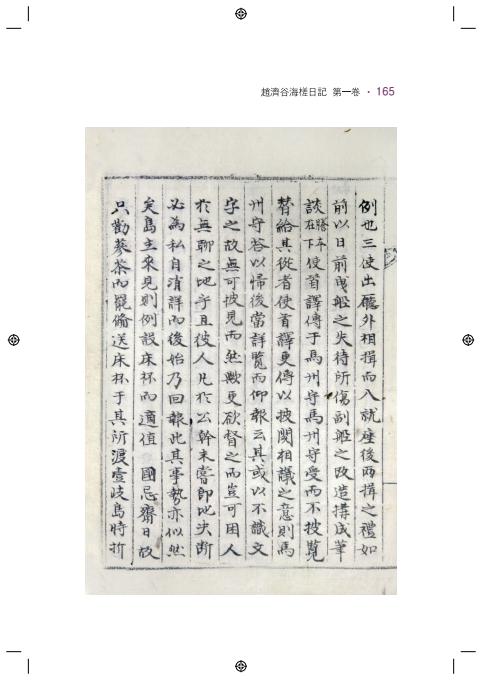 趙濟谷海槎日記 第一卷 · 165
例也三使出廳外相揖而入就座後兩揖之禮如
前以日前曳船之失待所傷副船之改造搆成筆
談 勝本在下 使首譯傳于馬州守馬州守受而不披覽
替給其從者使首譯更傳以披閱相議之意則馬
州守答以歸後當詳覽而仰報云其或以不識文
字之故無可披見而然歟更欲督之而豈可困人
於無聊之地乎且彼人凡於公幹未嘗卽地決斷
必爲私自消詳而後始乃回報此其事勢亦似然
矣島主來見則例設床杯而適值 國忌齋日故
只勸蔘茶而罷備送床杯于其所渡壹岐島時折